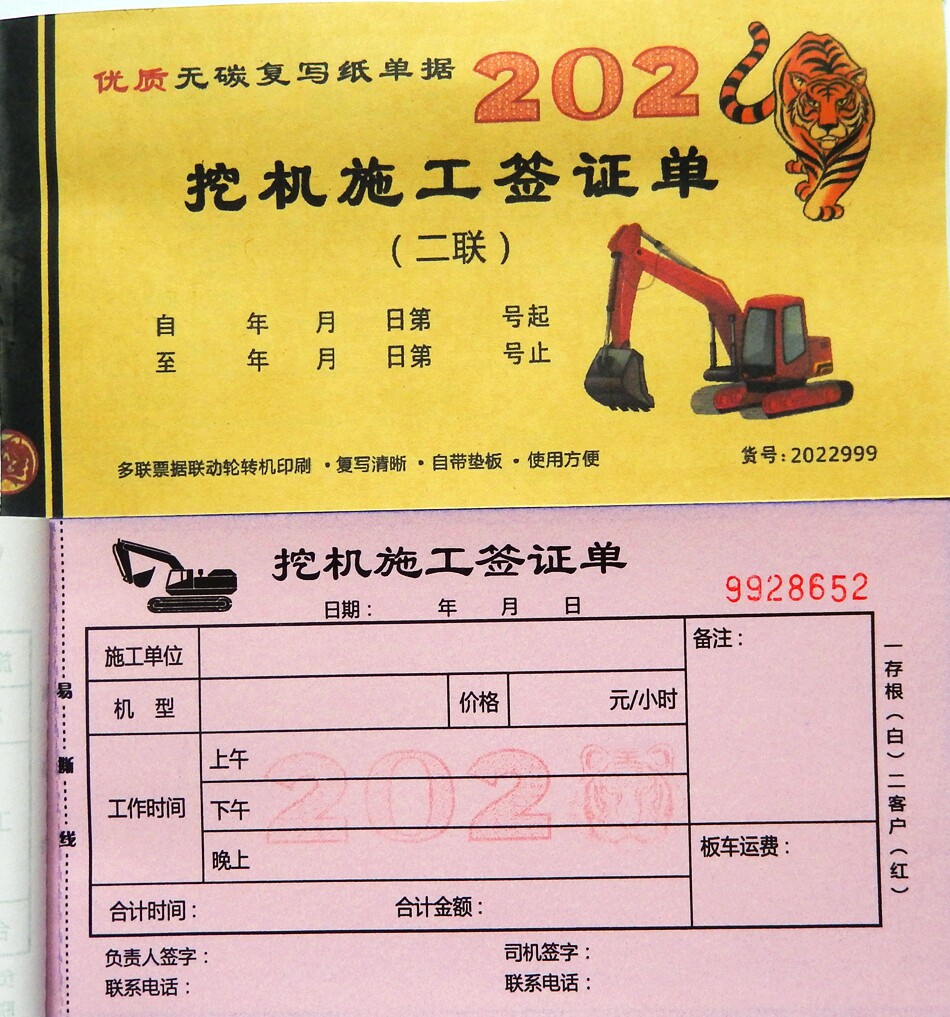 优质无碳复写纸单据 202
挖机施工签证单
（二联）
自 年 月 日第 号起
至 年 月 日第 号止
多联票据联动轮转机印刷 ·复写清晰 ·自带垫板 ·使用方便
货号:2022999
挖机施工签证单
日期： 年 月 日
9928652
施工单位
备注：
机 型
价格
元/小时
工作时间
上午
下午
晚上
202
板车运费：
合计时间： 合计金额：
负责人签字： 司机签字：
联系电话： 联系电话：
一存根（白）二客户（红）
易撕线